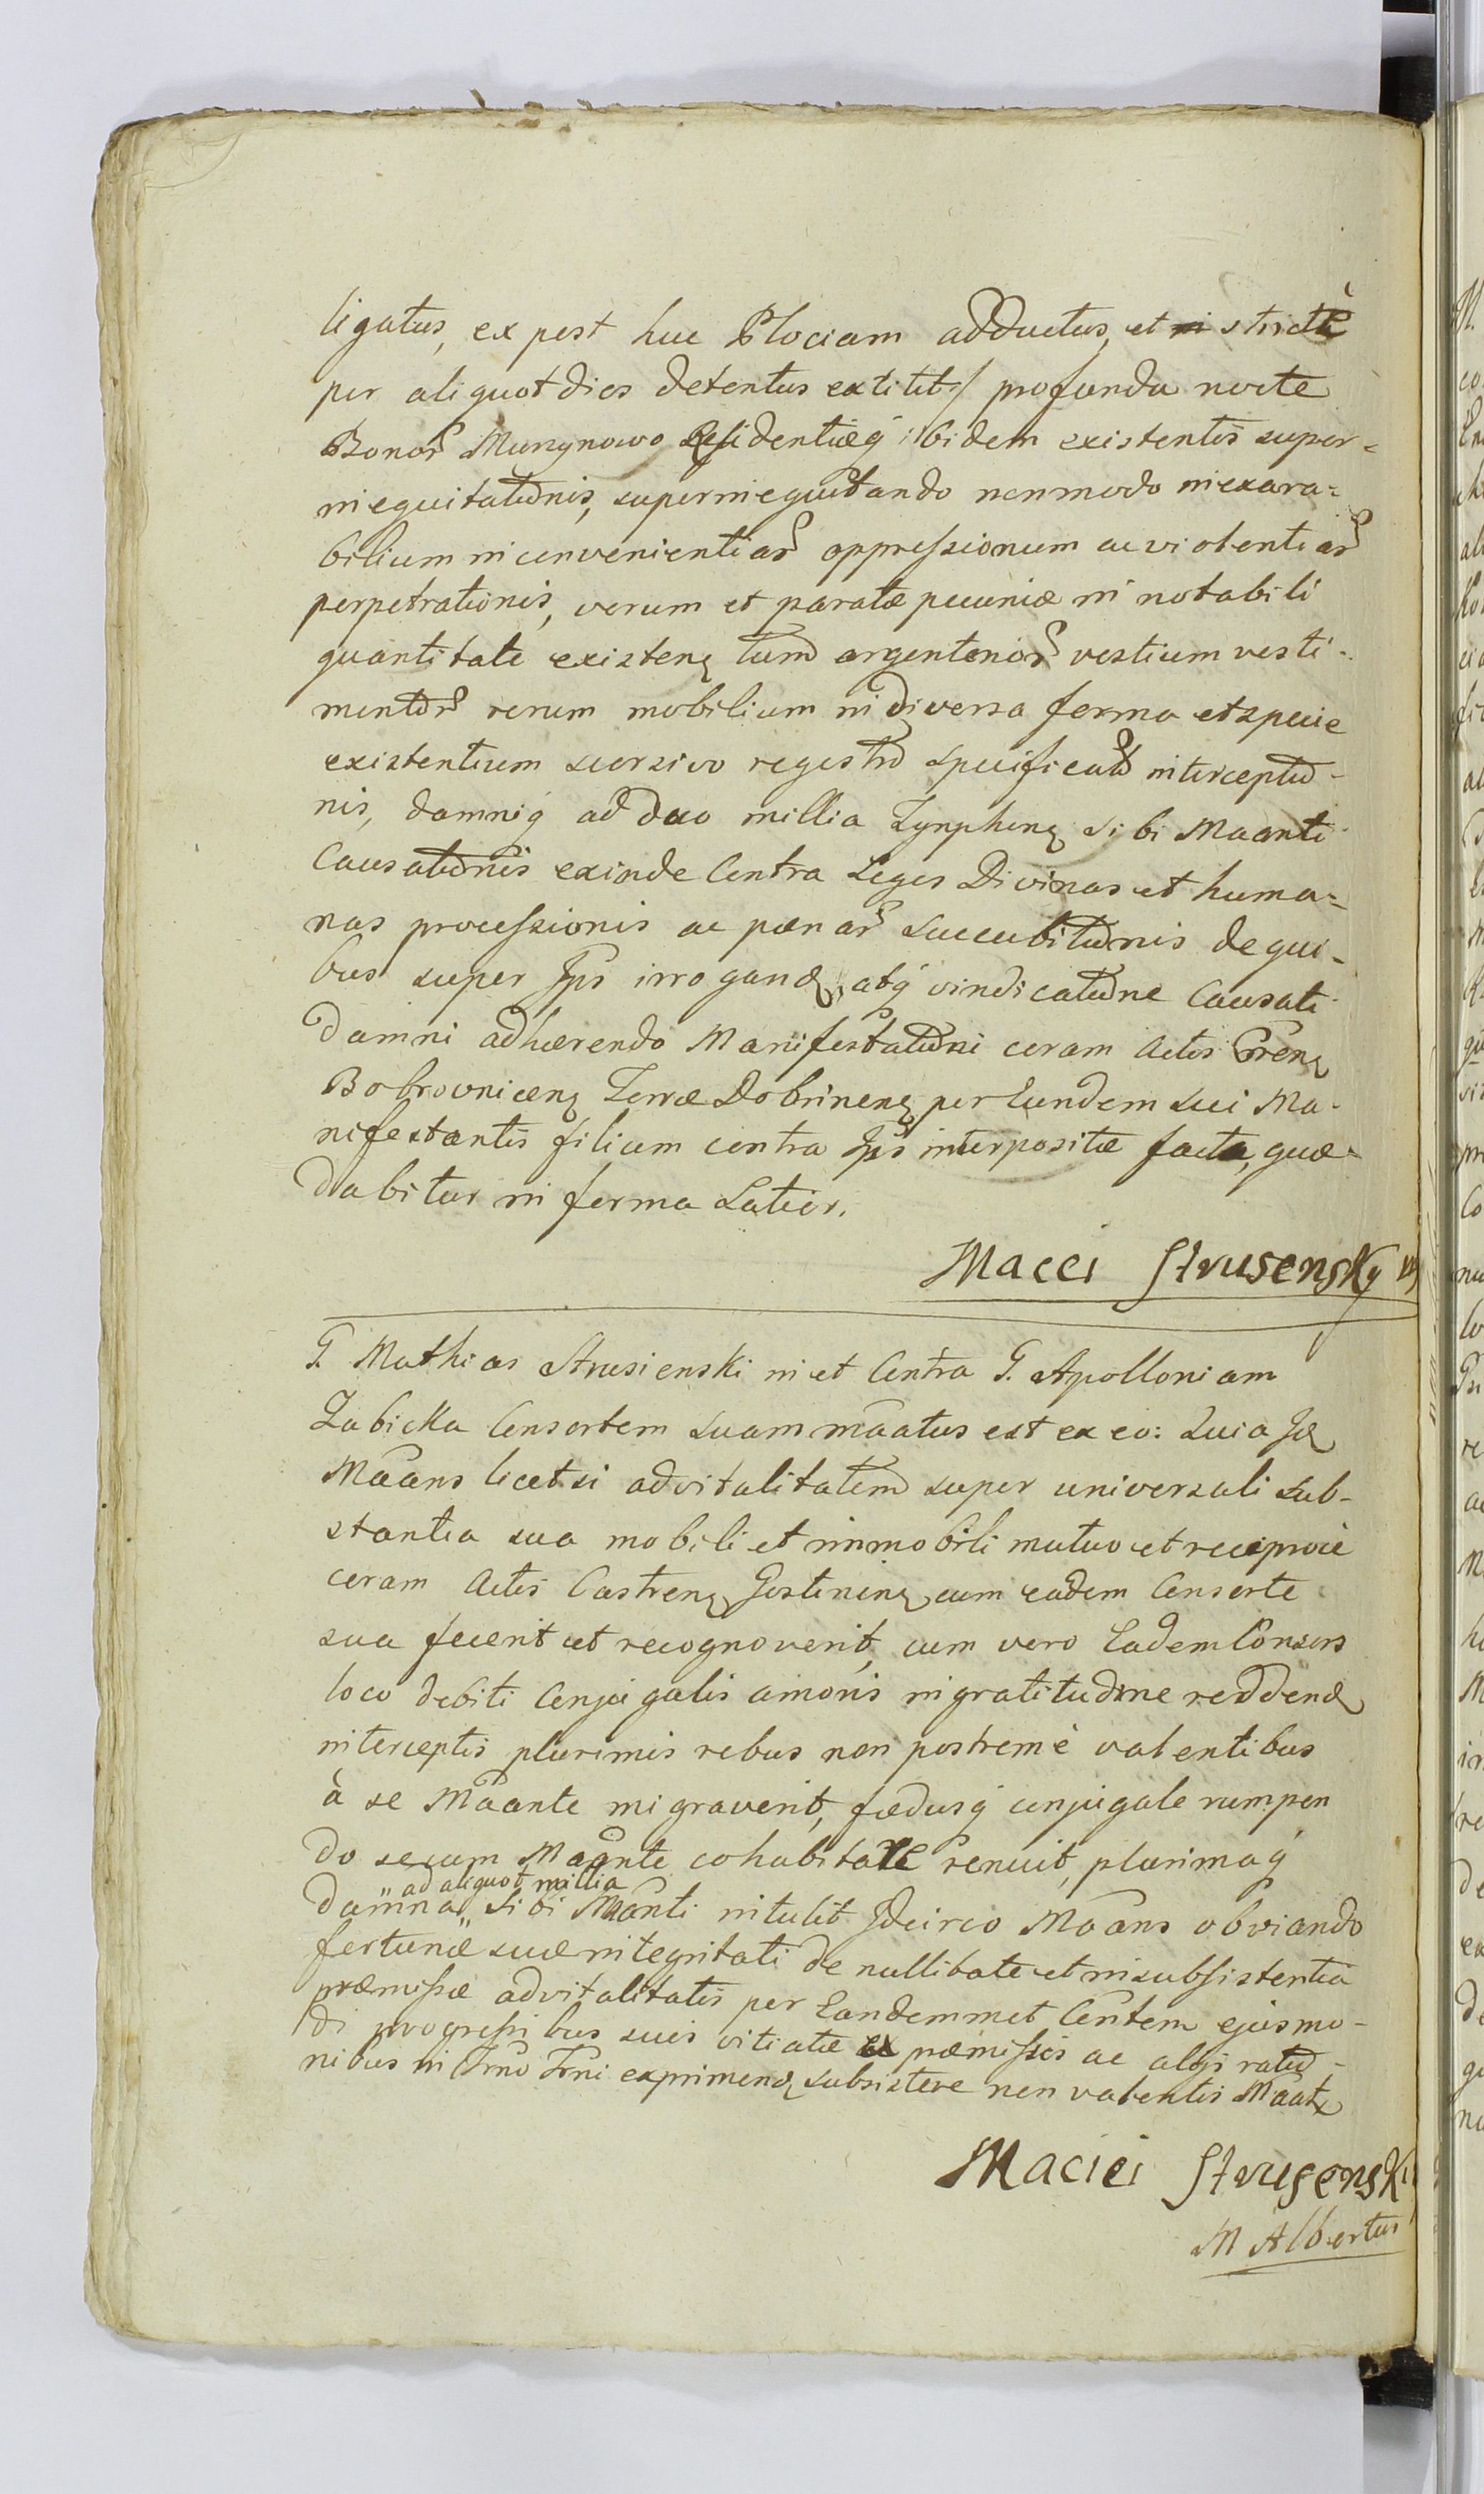 ligatus, ex post huc Plociam adductus, et strictè
per aliquot dies detentus extitit / profunda nocte
Bonor Murzynowo Residentiæq ibidem existentis super=
inequitationis, superinequitando nonmodo inexara=
bilium inconvenientiar oppressionum ac violentiar
perpetrationis, verum et paratæ pecuniæ in notabili
quantitate existen tum argenterior vestium vesti-
mentor rerum mobilium in diversa forma et specie
existentium seorsivo regestro specificator interceptio-
nis, damniq ad duo millia Tynphen sibi Maanti
Causationis exinde Contra Leges Divinas et huma=
nas processionis ac pænar Luccubitionis de qui-
bus super Ips irrogand, atq vindicatione Causati
damni adhærendo Manifestationi coram Actis Cren
Bobrovnicen Terræ Dobrinen per Eundem sui Ma-
nifestantis filium contra Ips interpositæ facta, quæ
dabitur in forma Latior.
Macci Strusensky
G. Mathias Strusienski in et Contra G. Apolloniam
Zabicka Consortem suam maatus est ex eo: Quia Id
Maans licet si advitalitatem super universali sub-
stantia sua mobili et immobili mutuo et reciproce
coram Actis Castren Gostinin cum eadem Consorte
sua fecerit et recognoverit, cum vero Eadem Consors
loco debiti Conjugalis amoris ingratitudine reddend
interceptis plurimis rebus non postremè valentibus
à se Maante migraverit, fœdusq conjugale rumpen
do secum Maante cohabitare renuit, plurimaq
" ad aliquot millia
damna " sibi Maanti intulit Idcirco Maans obviando
fortunæ suæ integritati de nullitate et insubsistentia
præmissæ advitalitatis per Eandemmet Contem ejusmo-
di progressibus suis vitiatæ ex præmissis ac alijs ratio-
nibus in Trno Trni exprimend subsistere non valentis Maat
Maciei Strusenski
M Albertus